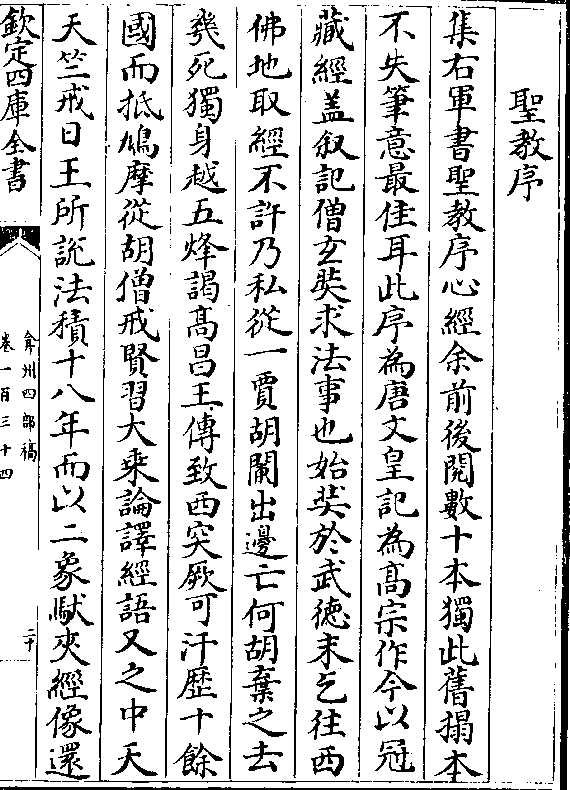 聖教序
集右軍書聖教序心經余前後閱數十本獨此舊搨本
不失筆意最佳耳此序為唐文皇記為髙宗作今以冠
藏經盖叙記僧玄奘求法事也始奘於武徳末乞往西
佛地取經不許乃私從一賈胡闌出邊亡何胡棄之去
㡬死獨身越五烽謁髙昌王傳致西突厥可汗歴十餘
國而抵鳩摩從胡僧戒賢習大乗論譯經語又之中天
天竺戒日王所說法積十八年而以二象馱夾經像還
欽定四庫全書
弇州四部稿
卷一百三十四
二十